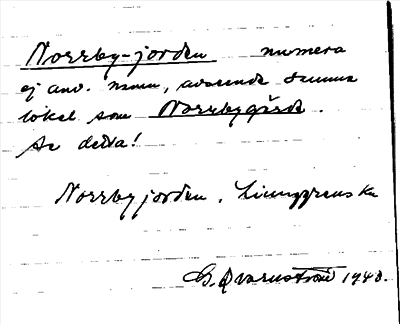 Norrby-jorden numera
ej anv. namn, avseende samma
lokal som Norrbygärde.
Se detta!
Norrbyjorden, Ljunggrenska
G. Qvarnström 1940.